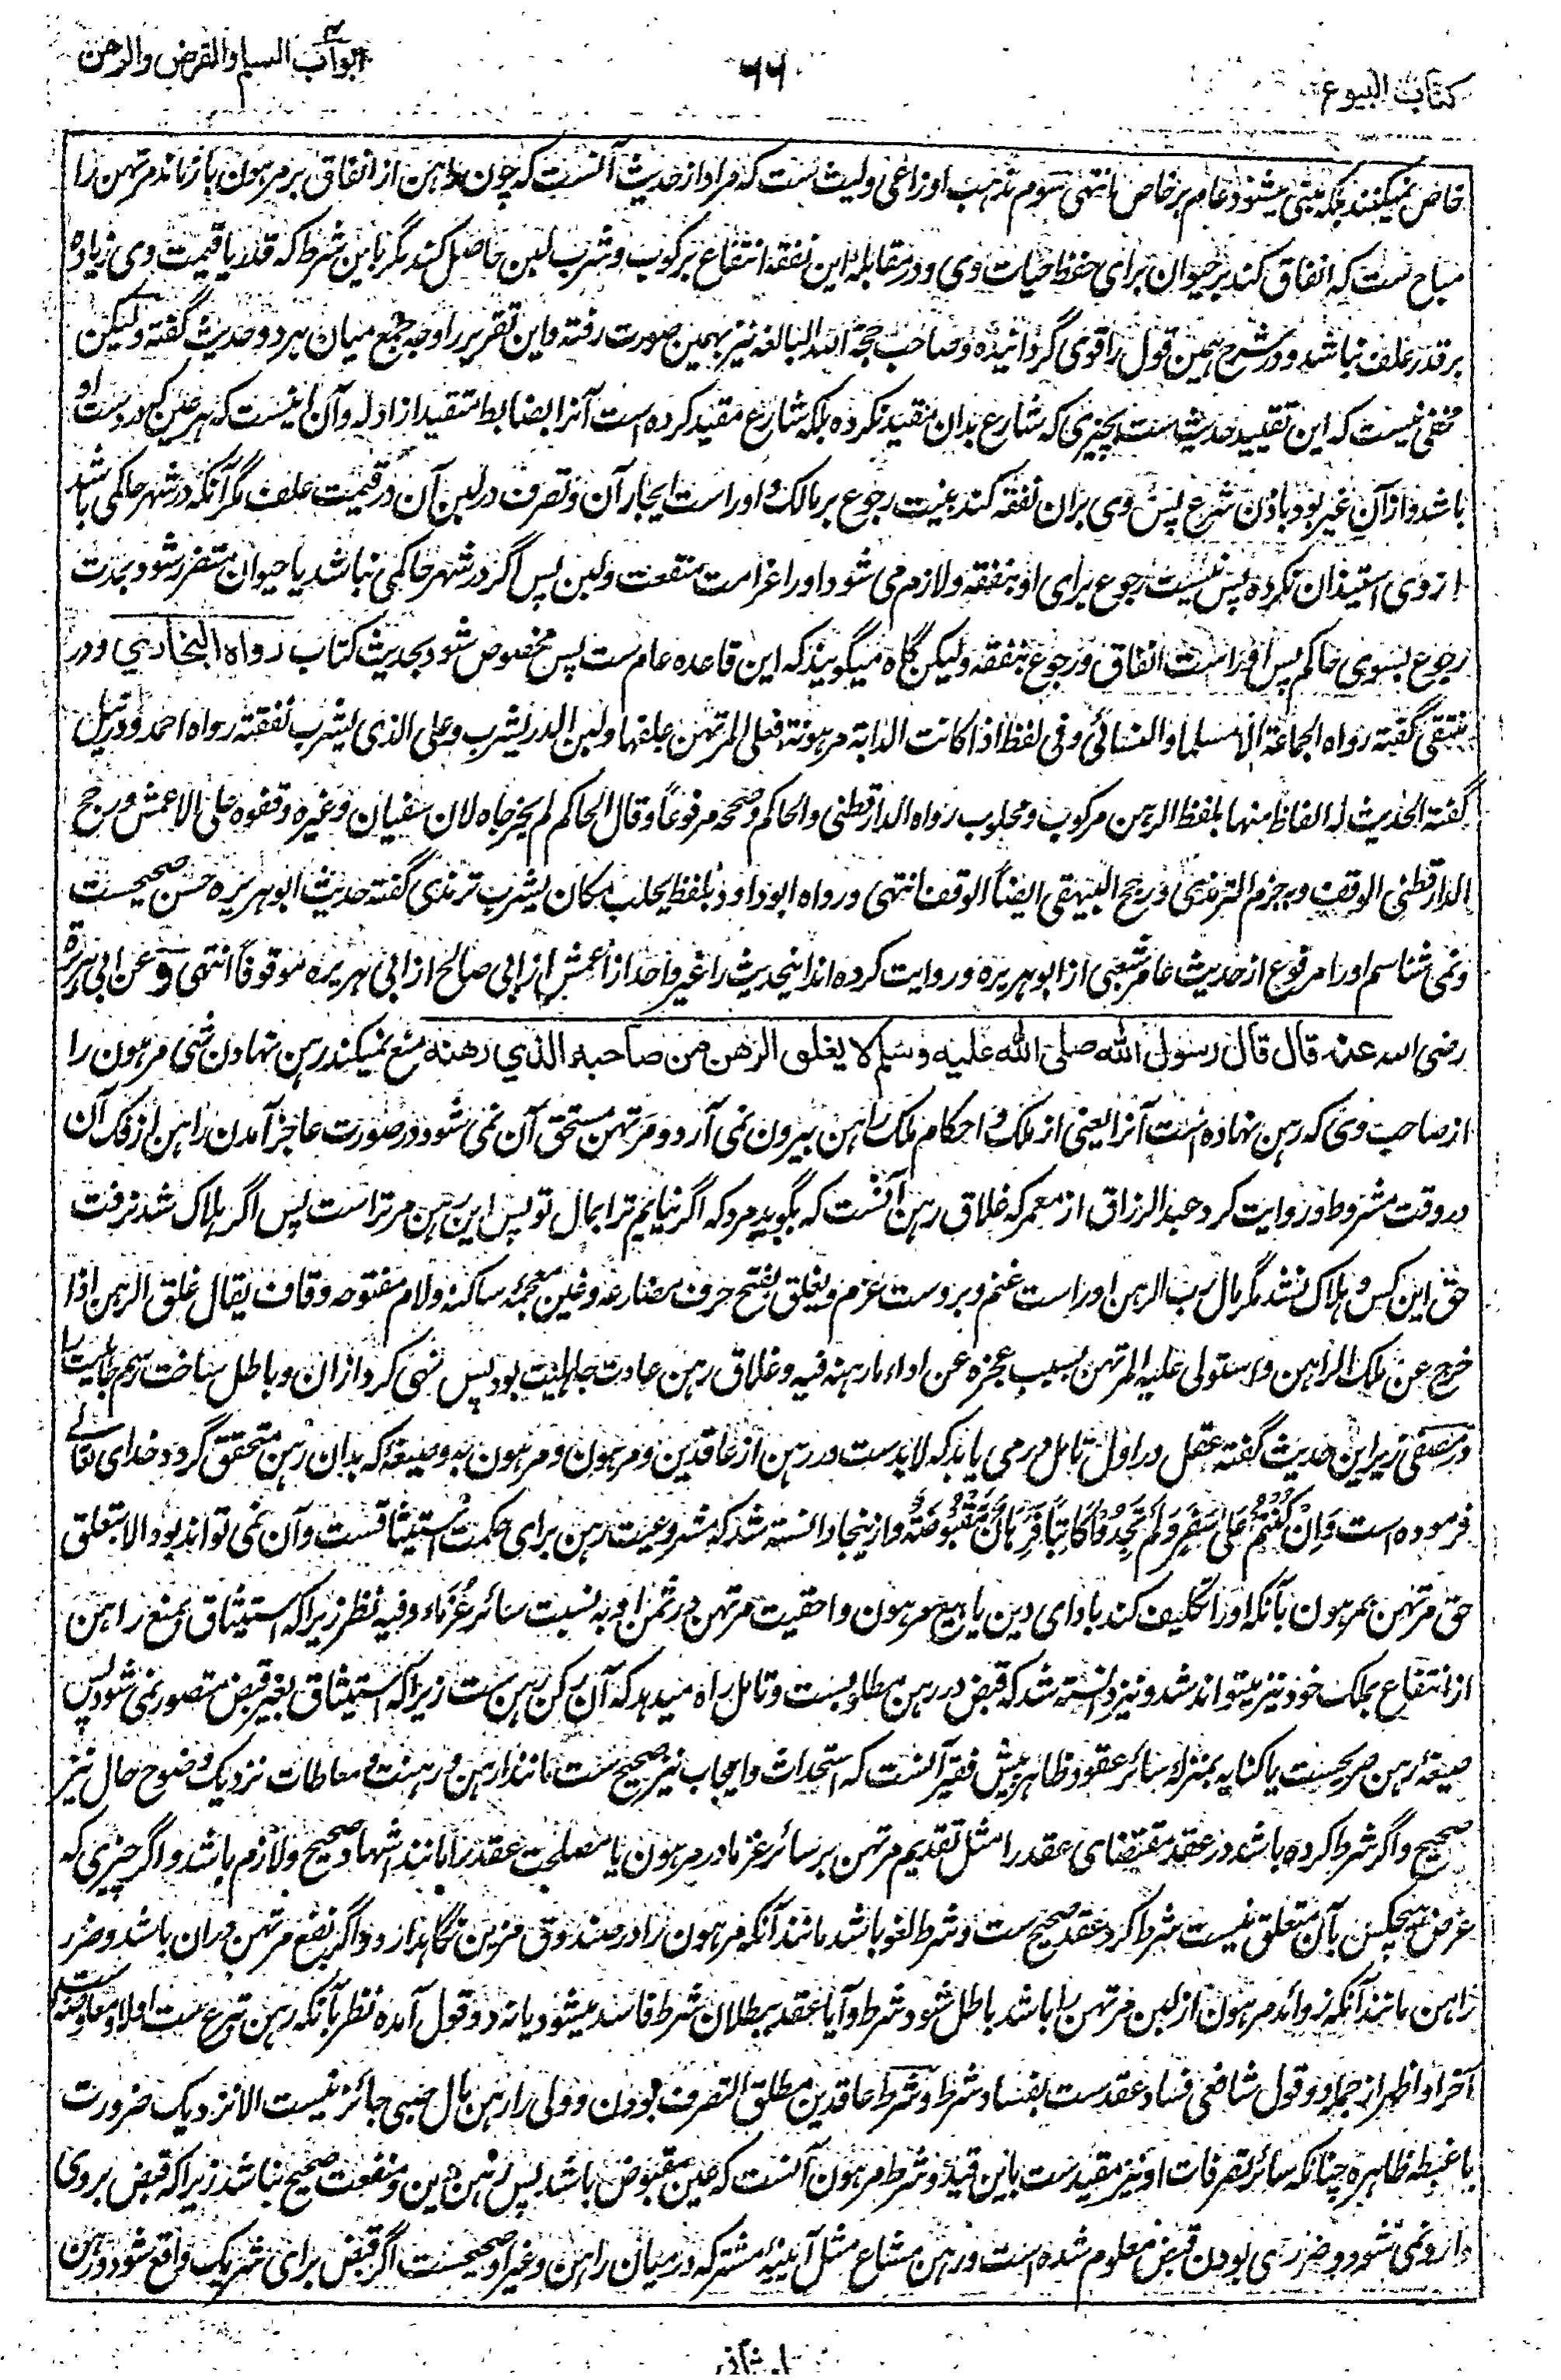 کتاب البیوع
۶۶
ابواب السلم والقرض والرهن
خاص نمیکنند بلکه مبنی میشود عام بر خاص انتهی سوم مذهب اوزاعی ولیث ست که مراد از حدیث آنست که چون راهن از انفاق بر مرهون باز ماند مرتهن را
مباح ست که انفاق کند بر حیوان برای حفظ حیات وی و در مقابله این نفقه انتفاع برکوب و شرب لبن حاصل کند مگر باین شرط که قدر یا قیمت وی زیاده
بر قدر علف نباشد و در شرح همین قول را قوی گردانیده و صاحب حجة الله البالغه نیز بهمین صورت رفته و این تقریر را وجه جمع میان هر دو حدیث گفته ولیکن
مخفی نیست که این تقیید حدیث ست بچیزی که شارع بدان مقید نکرده بلکه شارع مقید کرده است آنرا بضابط متقید از ادله و آن اینست که هر عین که در دست او
باشد و از آن غیر بود باذن شرع پس وی بران نفقه کند بنیت رجوع بر مالک و او راست ایجار آن و تصرف در لبن آن در قیمت علف مگر آنکه در شهر حاکمی باشد
از وی استیذان نکرده پس نیست رجوع برای او بنفقه ولازم می شود او را غرامت منفعت و لبن پس اگر در شهر حاکمی نباشد یا حیوان متضرر شود بمدت
رجوع بسوی حاکم پس او راست انفاق و رجوع بنفقه ولیکن گاه میگویند که این قاعده عام ست پس مخصوص شود بحدیث کتاب رواه البخاري و در
منتقی گفته رواه الجماعة الا مسلما والنسائی وفی لفظ اذا کانت الدابة مرهونة فعلی المرتهن علفها ولبن الدر یشرب وعلی الذی یشرب نفقته رواه احمد و در نیل
گفته الحدیث له الفاظ منها بلفظ الرهن مرکوب ومحلوب رواه الدارقطنی والحاکم وصححه مرفوعاً وقال الحاکم لم یخرجاه لان سفیان وغیره وقفوه علی الاعمش ورجح
الدارقطنی الوقف وبه جزم الترمذی ورجح البیهقی ایضاً الوقف انتهی ورواه ابو داود بلفظ یحلب مکان یشرب ترمذی گفته حدیث ابو هریره حسن صحیحست
ونمی شناسم او را مرفوع از حدیث عامر شعبی از ابو هریره و روایت کرده اند اینحدیث را غیر واحد از اعمش از ابی صالح از ابی هریره موقوفاً انتهی وعن ابی هریرة
رضی الله عنه قال قال رسول الله صلی الله علیه وسلم لا یغلق الرهن من صاحبه الذي رهنه منع نمیکند رهن نهادن شئی مرهون را
از صاحب وی که رهن نهاده است آنرا یعنی از ملک و احکام ملک راهن بیرون نمی آرد و مرتهن مستحق آن نمی شود در صورت عاجز آمدن راهن از فک آن
در وقت مشروط و روایت کرد عبدالرزاق از معمر که غلاق رهن آنست که بگوید مرد که اگر نیایم ترا بمال تو پس این رهن مر تراست پس اگر هلاک شد نرفت
حق این کس و هلاک نشد مگر مال رب الرهن او راست غنم و بروست غرم و یغلق بفتح حرف مضارعه و غین معجمه ساکنه ولام مفتوحه وقاف یقال غلق الرهن اذا
خرج عن ملک الراهن واستولی علیه المرتهن بسبب عجزه عن اداء ما رهنه فیه و غلاق رهن عادت جاهلیت بود پس نهی کرد ازان و باطل ساخت رسم جاهلیت را
در مصفی زیر این حدیث گفته عقل در اول تامل در می یابد که لابد ست در رهن از عاقدین و مرهون و مرهون به و صیغه که بدان رهن متحقق گردد خدای تعالی
فرموده است وَاِنْ کُنْتُمْ عَلٰی سَفَرٍ وَلَمْ تَجِدُوْا کَاتِبًا فَرِهَانٌ مَّقْبُوضَةٌ و ازینجا دانسته شد که مشروعیت رهن برای حکمت استیثاقست و آن نمی تواند بود الا بتعلق
حق مرتهن بمرهون بآنکه او را تکلیف کند بادای دین یا بیع مرهون و احقیت مرتهن در ثمن او به نسبت سائر غرماء وفیه نظر زیرا که استیثاق بمنع راهن
از انتفاع بملک خود نیز میتواند شد و نیز دانسته شد که قبض در رهن مطلوبست و تامل راه میدهد که آن رکن رهن ست زیرا که استیثاق بغیر قبض متصور نمی شود پس
صیغهٔ رهن صریحست یا کنایه بمنزلهٔ سائر عقود و ظاهر پیش فقیر آنست که استحداث وایجاب نیز صحیح ست مانند ارهن و رهنت و معاطات نزدیک وضوح حال نیز
صحیح و اگر شرط کرده باشد در عقد مقتضای عقد را مثل تقدیم مرتهن بر سائر غرما در مرهون یا مصلحت عقد را مانند اشهاد صحیح ولازم باشد و اگر چیزی که
غرض هیچکس بآن متعلق نیست شرط کرد عقد صحیح ست و شرط لغو باشد مانند آنکه مرهون را در صندوق مزین نگاهدارد و اگر نفع مرتهن دران باشد و ضرر
راهن مانند آنکه زوائد مرهون از لبن مرتهن را باشد باطل شود شرط و آیا عقد ببطلان شرط فاسد میشود یا نه دو قول آمده نظر بآنکه رهن تبرع ست اولا و معاوضه ست
آخرا و اظهر از جمله دو قول شافعی فساد عقد ست بفساد شرط و شرط عاقدین مطلق التصرف بودن و ولی را رهن مال صبی جائز نیست الا نزدیک ضرورت
یا غبطه ظاهره چنانکه سائر تصرفات او نیز مقید ست باین قید و شرط مرهون آنست که عین مقبوض باشد پس رهن دین و منفعت صحیح نباشد زیرا که قبض بر وی
وارد نمی شود و ضروری بودن قبض معلوم شده است و رهن مشاع مثل آبینه مشترکه درمیان راهن و غیر او صحیحست اگر قبض برای شریک واقع شود و رهن